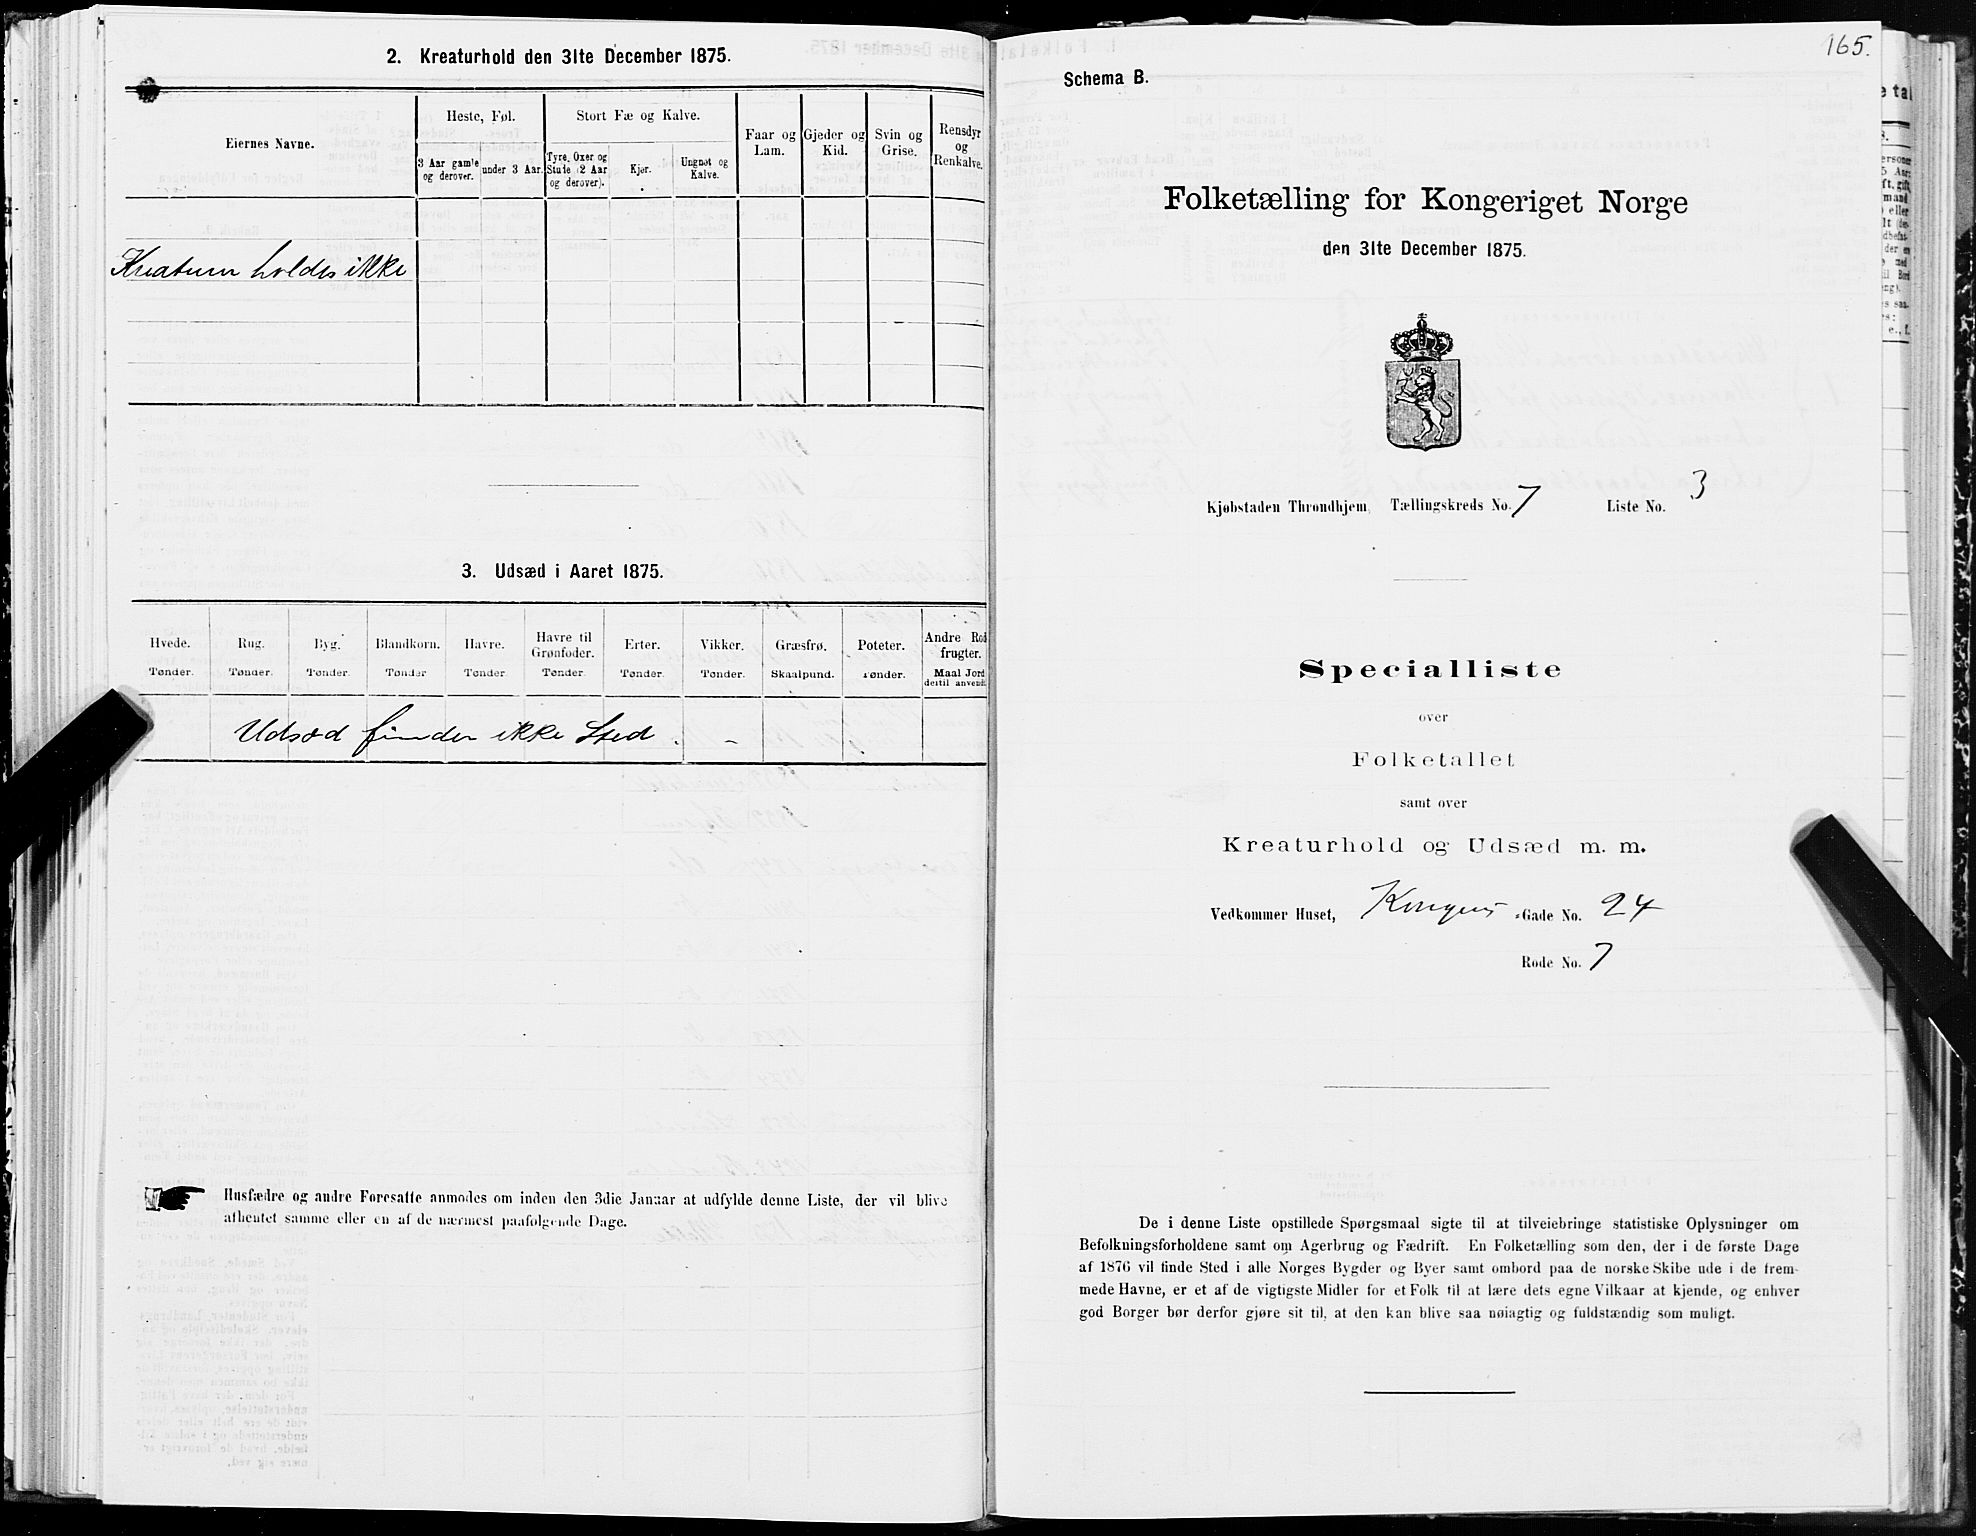 2. Kreaturhold den 31te December 1875.
Eiernes Navne.
Heste, Føl.
Stort Fæ og Kalve.
Faar og
Lam.
Gjeder og
Kid.
Svin og
Grise.
Rensdyr
og
Renkalve.
3 Aar gamle
og derover.
under 3 Aar.
Tyre, Oxer og
Stude (2 Aar
og derover).
Kjør.
Ungnøt og
Kalve.
Kreaturer holdes ikke
3. Udsæd i Aaret 1875.
Hvede.
Rug.
Byg.
Blandkorn.
Havre.
Havre til
Grønfoder.
Erter.
Vikker.
Græsfrø.
Poteter.
Andre Rod
frugter.
Tønder.
Tønder.
Tønder.
Tønder
Tønder
Tønder
Tønder.
Tønder.
Skaalpund.
Tønder.
Maal Jord
dertil anvendt.
Udsæd finder ikke Sted. -
Husfædre og andre Foresatte anmodes om inden den 3die Januar at udfylde denne Liste, der vil blive
afhentet samme eller en af de nærmest paafølgende Dage.
165.
Schema B.
Folketælling for Kongeriget Norge
den 31te December 1875.
Kjøbstaden Throndhjem, Tællingskreds No. 7 Liste No. 3
Specialliste
over
Folketallet
samt over
Kreaturhold og Udsæd m. m.
Vedkommer Huset, Kongens -Gade No. 24
Rode No. 7
De i denne Liste opstillede Spørgsmaal sigte til at tilveiebringe statistiske Oplysninger om
Befolkningsforholdene samt om Agerbrug og Fædrift. En Folketælling som den, der i de første Dage
af 1876 vil finde Sted i alle Norges Bygder og Byer samt ombord paa de norske Skibe ude i de frem-
mede Havne, er et af de vigtigste Midler for et Folk til at lære dets egne Vilkaar at kjende, og enhver
god Borger bør derfor gjøre sit til, at den kan blive saa nøiagtig og fuldstændig som muligt.